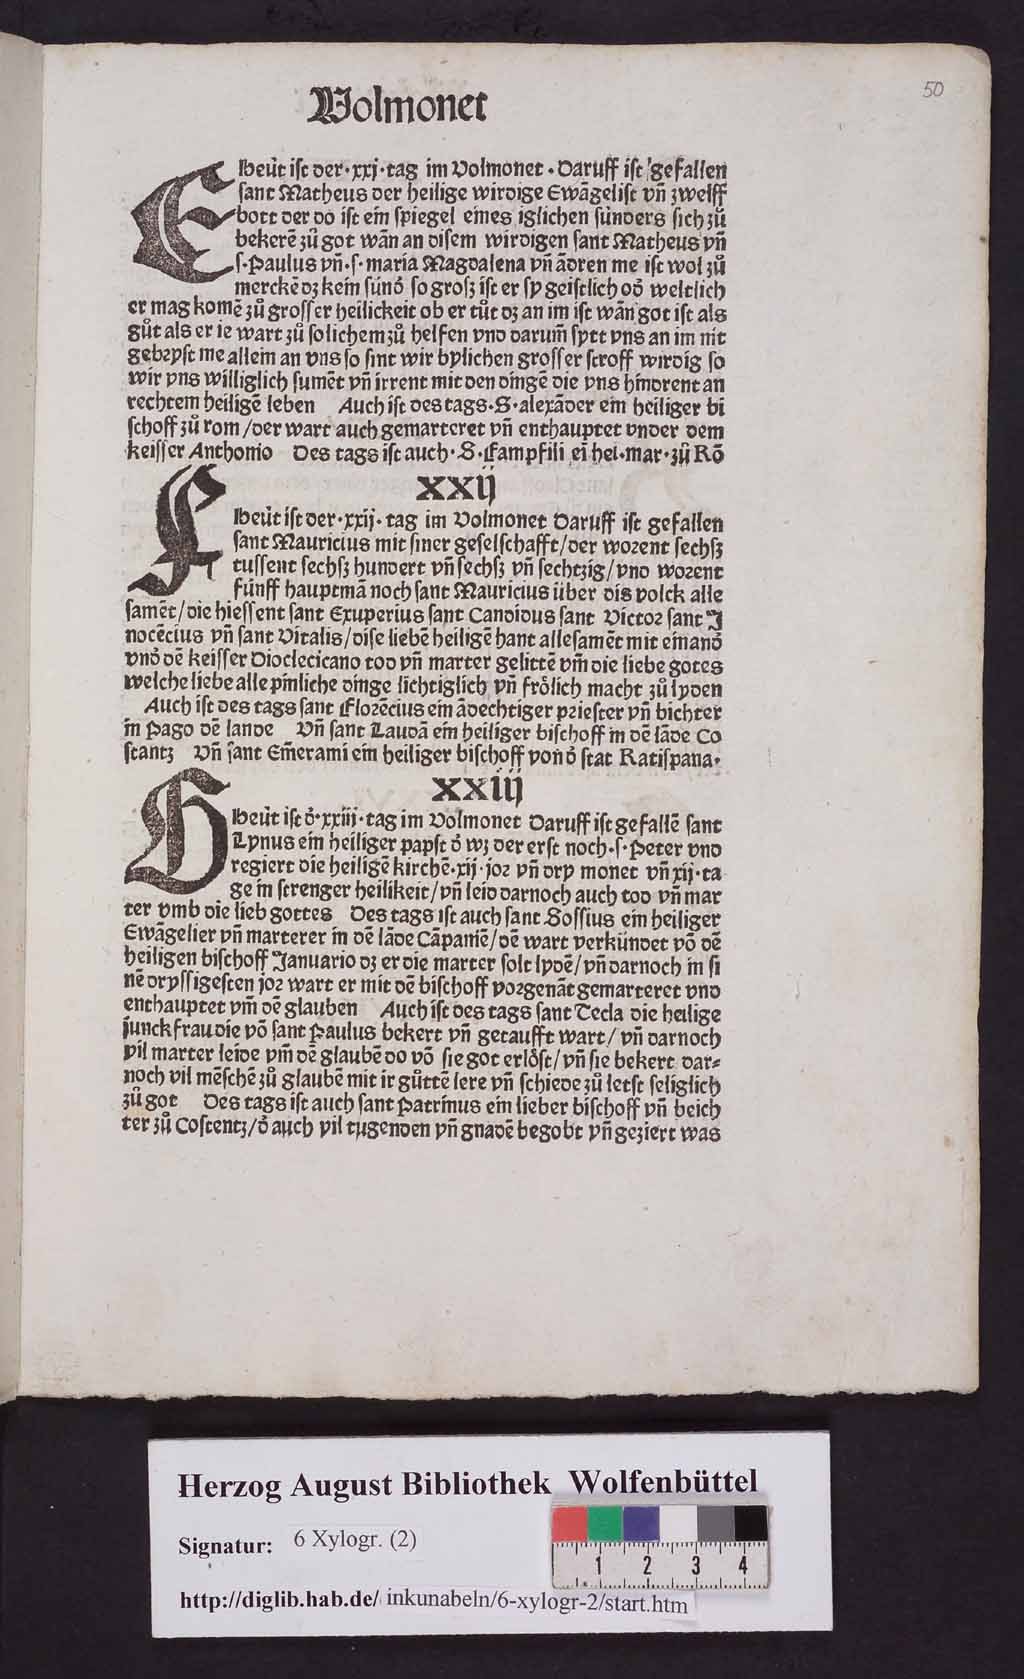 50
Volmonet
E Heüt ist der·xxj·tag im Volmonet·Daruff ist gefallen
sant Matheus der heilige wirdige Ewãgelist vñ zwelff
bott der do ist ein spiegel eines iglichen sünders sich zů
bekerē zů got wãn an disem wirdigen sant Matheus vñ
s·Paulus vñ·s·maria Magdalena vñ ãdren me ist wol zů
merckē dz kein sünd̄ so grosz ist er sy geistlich od̄ weltlich
er mag komē zů grosser heilickeit ob er tůt dz an im ist wãn got ist als
gůt als er ie wart zů solichem zů helfen vnd darum̄ sytt vns an im nit
gebryst me allein an vns so sint wir bylichen grosser stroff wirdig so
wir vns williglich sumēt vñ irrent mit den dingē die vns hindrent an
rechtem heiligē leben Auch ist des tags·S·alexãder ein heiliger bi
schoff zů rom/der wart auch gemarteret vñ enthauptet vnder dem
keisser Anthonio Des tags ist auch·S·Fampfili ei᷑ hei·mar·zů Rō
xxij
F Heüt ist der·xxij·tag im Volmonet Daruff ist gefallen
sant Mauricius mit siner geselschafft/der worent sechsz
tussent sechsz hundert vñ sechsz vñ sechtzig/vnd worent
fünff hauptmã noch sant Mauricius über dis volck alle
samēt/die hiessent sant Exuperius sant Candidus sant Victor sant J
nocēcius vñ sant Vitalis/dise liebē heiligē hant alle samēt mit einand̄
vnd̄ dē keisser Dioclecicano tod vñ marter gelittē vm̄ die liebe gotes
welche liebe alle pinliche dinge lichtiglich vñ frölich macht zů lyden
Auch ist des tags sant Florēcius ein ãdechtiger priester vñ bichter
in Pago dē lande Vñ sant Laudã ein heiliger bischoff in dē lãde Co
stantz Vñ sant Em̄erami ein heiliger bischoff von d̄ stat Ratispana·
xxiij
G Heüt ist d̄·xxiij·tag im Volmonet Daruff ist gefallē sant
Lynus ein heiliger papst d̄ wz der erst noch·s·Peter vnd
regiert die heiligē kirchē·xij·jor vñ dry monet vñ xij·ta
ge in strenger heilikeit/vñ leid darnoch auch tod vñ mar
ter vmb die lieb gottes Des tags ist auch sant Sossius ein heiliger
Ewãgelier vñ marterer in dē lãde Cãpaniē/dē wart verkündet vō dē
heiligen bischoff Januario dz er die marter solt lydē/vñ darnoch in si
nē dryssigesten jor wart er mit dē bischoff vorgenãt gemarteret vnd
enthauptet vm̄ dē glauben Auch ist des tags sant Tecla die heilige
junckfrau die vō sant Paulus bekert vñ getaufft wart/vñ darnoch
vil marter leide vm̄ dē glaubē do vō sie got erlöst/vñ sie bekert dar⸗
noch vil mēschē zů glaubē mit ir gůttē lere vñ schiede zů letst seliglich
zů got Des tags ist auch sant Patrinus ein lieber bischoff vñ beich
ter zů Costentz/d̄ auch vil tugenden vñ gnadē begobt vñ geziert was
Herzog August Bibliothek Wolfenbüttel
Signatur: 6 Xylogr. (2)
1 2 3 4
http://diglib.hab.de/inkunabeln/6-xylogr-2/start.htm